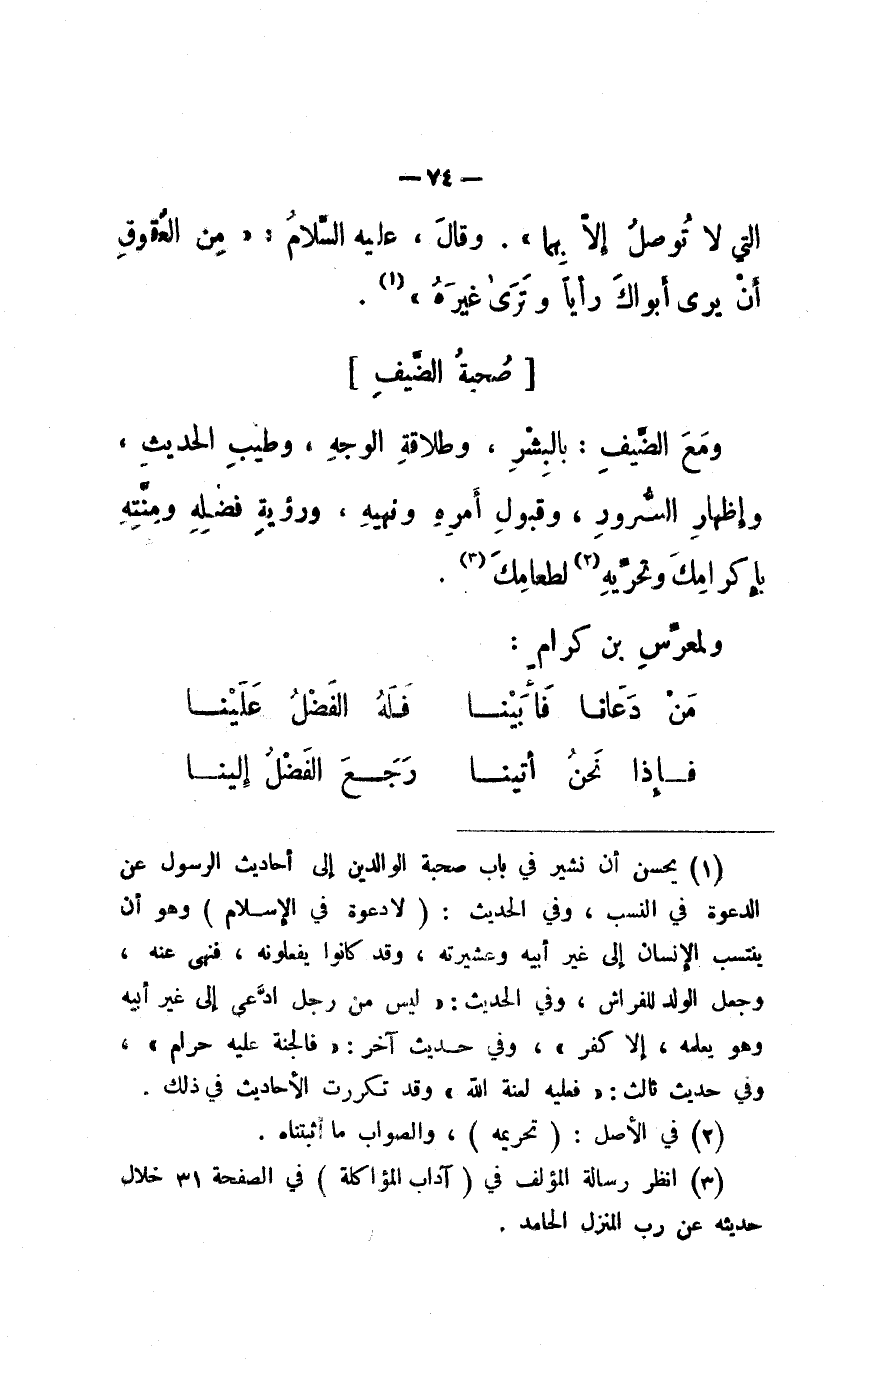 — ٧٤ —
التي لا تُوصلُ إلاّ بِها » . وقالَ ، عليه السَّلامُ : « مِن العُقوقِ
أنْ يرى أبواكَ رأياً وتَرَى غيرَهُ »(١) .
[ صُحبةُ الضَّيفِ ]
ومَعَ الضَّيفِ : بالبِشْرِ ، وطلاقةِ الوجهِ ، وطيبِ الحديثِ ،
وإظهارِ السُّرورِ ، وقبولِ أمرِهِ ونهيهِ ، ورؤيةِ فضلِهِ ومِنَّتِهِ
بإكرامِكَ وتحرّيهِ(٢) لطعامِكَ(٣) .
ولمعرَّسِ بن كرامٍ :
مَنْ دَعَانا فَأَبَيْنــا فَلَهُ الفَضْلُ عَلَيْنــا
فــإذا نَحنُ أتينــا رَجَــعَ الفَضْلُ إلينــا
(١) يحسن أن نشير في باب صحبة الوالدين إلى أحاديث الرسول عن
الدعوة في النسب ، وفي الحديث : ( لادعوة في الإســلام ) وهو أن
ينتسب الإنسان إلى غير أبيه وعشيرته ، وقد كانوا يفعلونه ، فنهى عنه ،
وجعل الولد للفراش ، وفي الحديث : « ليس من رجل ادَّعى إلى غير أبيه
وهو يعلمه ، إلا كفر » ، وفي حــديث آخر : « فالجنة عليه حرام » ،
وفي حديث ثالث : « فعليه لعنة الله » وقد تكررت الأحاديث في ذلك .
(٢) في الأصل : ( تحريمه ) ، والصواب ما أثبتناه .
(٣) انظر رسالة المؤلف في ( آداب المؤاكلة ) في الصفحة ٣١ خلال
حديثه عن رب المنزل الحامد .